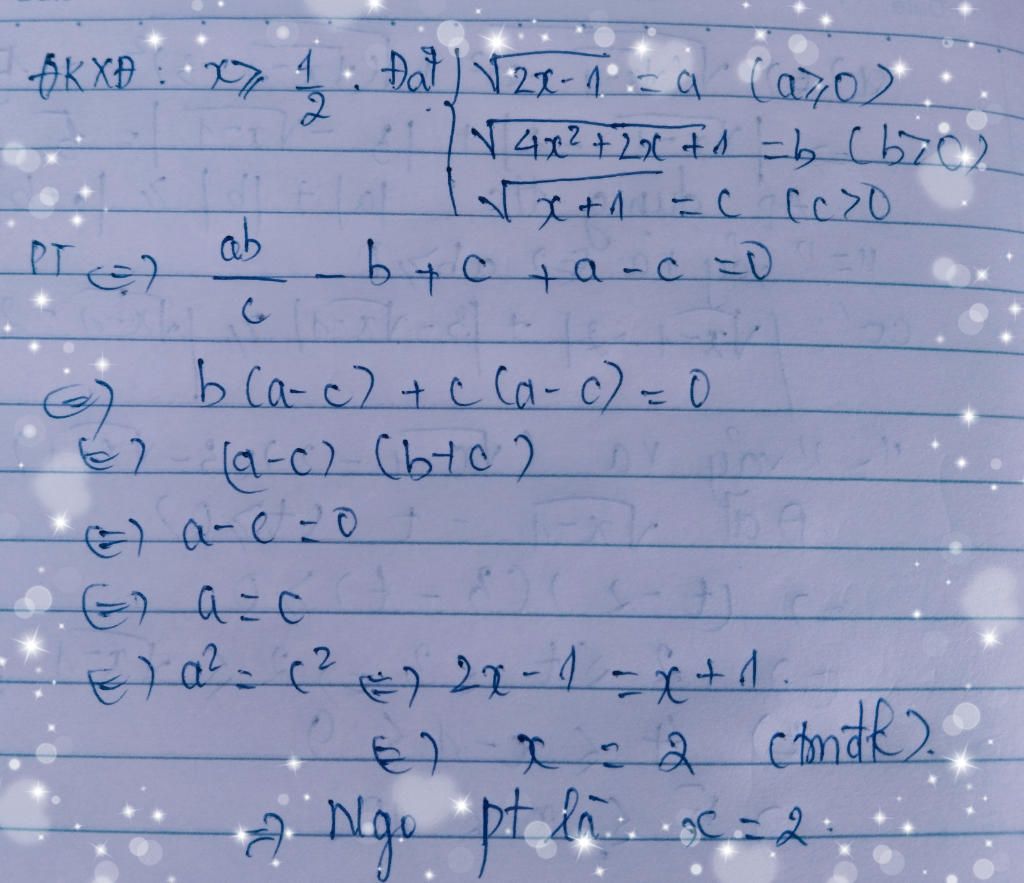 ĐKXĐ: x ≥ 1/2. Đặt { √(2x-1) = a (a≥0)
√(4x²+2x+1) = b (b>0)
√(x+1) = c (c>0
PT <=> ab/c - b + c + a - c = 0
<=> b(a-c) + c(a-c) = 0
<=> (a-c) (b+c)
<=> a-c=0
<=> a=c
<=> a² = c² <=> 2x-1 = x+1.
<=> x = 2 (tmđk).
=> Ngo pt là x=2.